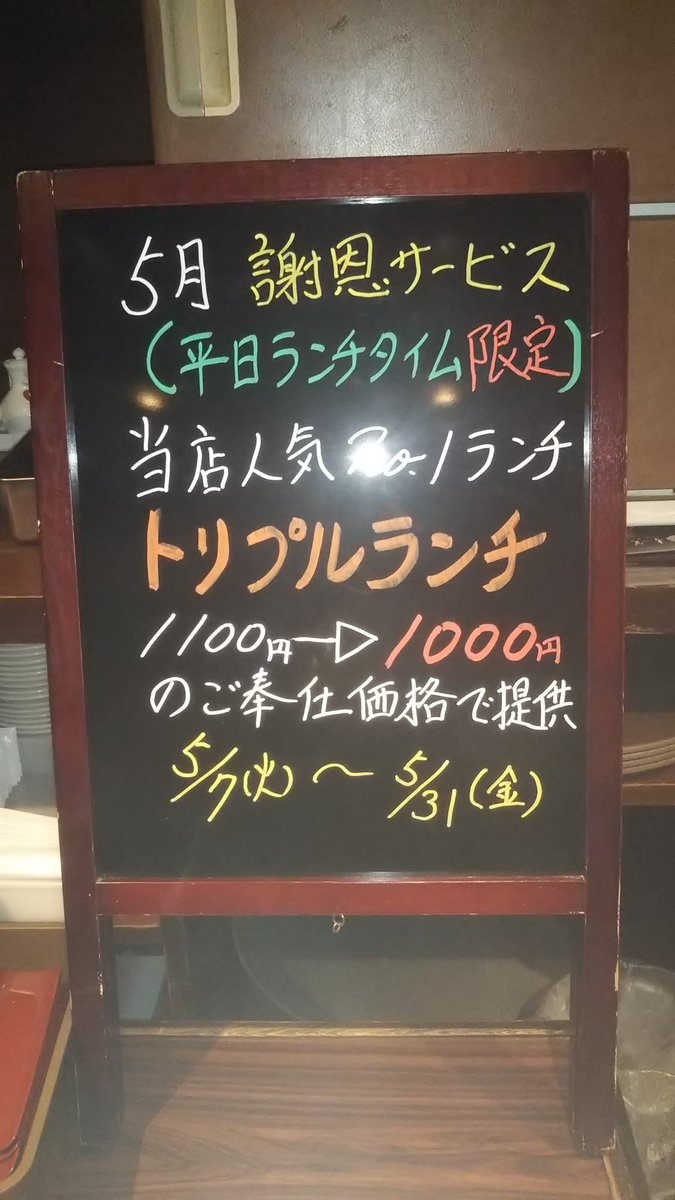 5月 謝恩サービス
(平日ランチタイム限定)
当店人気No.1ランチ
トリプルランチ
1100円→1000円
のご奉仕価格で提供
5/7(火)～5/31(金)